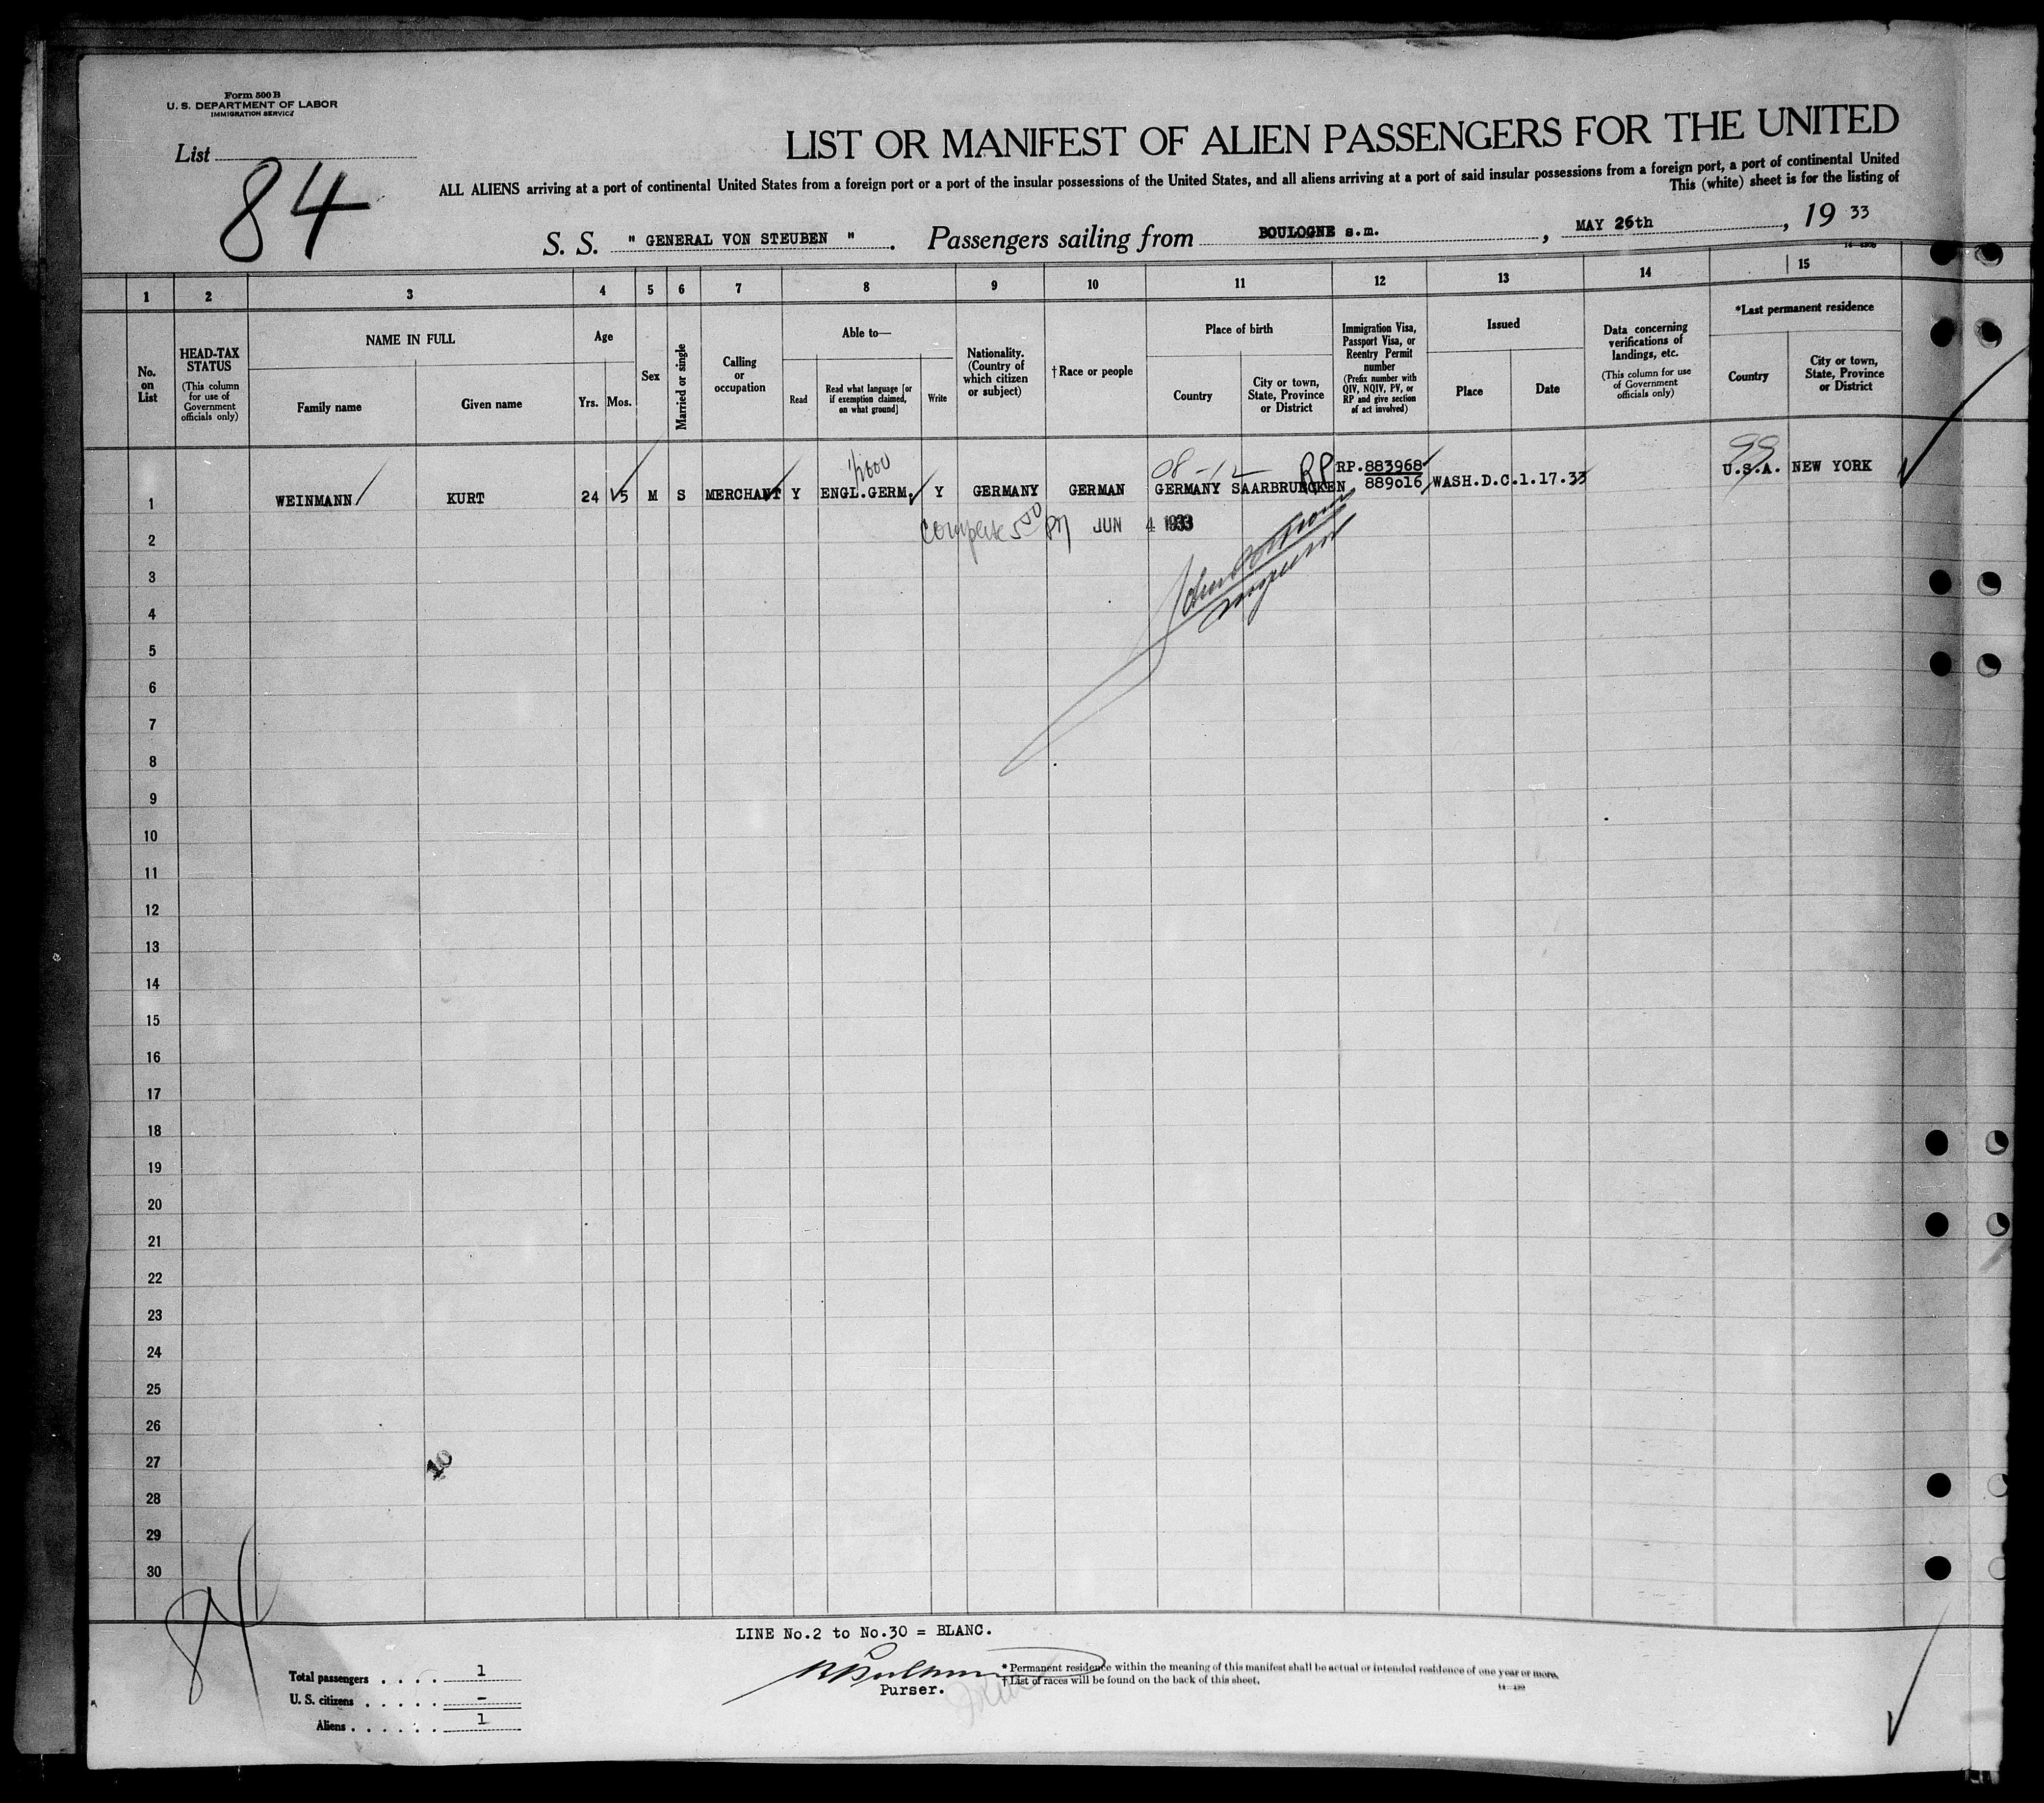 Form 500 B
U. S. DEPARTMENT OF LABOR
IMMIGRATION SERVICE
List
84
LIST OR MANIFEST OF ALIEN PASSENGERS FOR THE UNITED
ALL ALIENS arriving at a port of continental United States from a foreign port or a port of the insular possessions of the United States, and all aliens arriving at a port of said insular possessions from a foreign port, a port of continental United
This (white) sheet is for the listing of
S. S. " GENERAL VON STEUBEN " . Passengers sailing from BOULOGNE s.m. , MAY 26th , 19 33
1 2 3 4 5 6 7 8 9 10 11 12 13 14 15
No. on List
HEAD-TAX STATUS
(This column for use of Government officials only)
NAME IN FULL
Family name
Given name
Age
Yrs. Mos.
Sex
Married or single
Calling or occupation
Able to—
Read
Read what language [or if exemption claimed, on what ground]
Write
Nationality. (Country of which citizen or subject)
†Race or people
Place of birth
Country
City or town, State, Province or District
Immigration Visa, Passport Visa, or Reentry Permit number
(Prefix number with QIV, NQIV, PV, or RP and give section of act involved)
Issued
Place
Date
Data concerning verifications of landings, etc.
(This column for use of Government officials only)
*Last permanent residence
Country
City or town, State, Province or District
1/1600
08-12
RP
RP.883968
99
1 WEINMANN KURT 24 5 M S MERCHANT Y ENGL.GERM. Y GERMANY GERMAN GERMANY SAARBRUECKEN 889016 WASH.D.C. 1.17.33 U.S.A. NEW YORK
JUN 4 1933
2
3
4
5
6
7
8
9
10
11
12
13
14
15
16
17
18
19
20
21
22
23
24
25
26
27
10
28
29
30
84
LINE No.2 to No.30 = BLANC.
Purser.
Total passengers . . . . 1
U. S. citizens . . . . . –
Aliens . . . . . . 1
* Permanent residence within the meaning of this manifest shall be actual or intended residence of one year or more.
† List of races will be found on the back of this sheet.